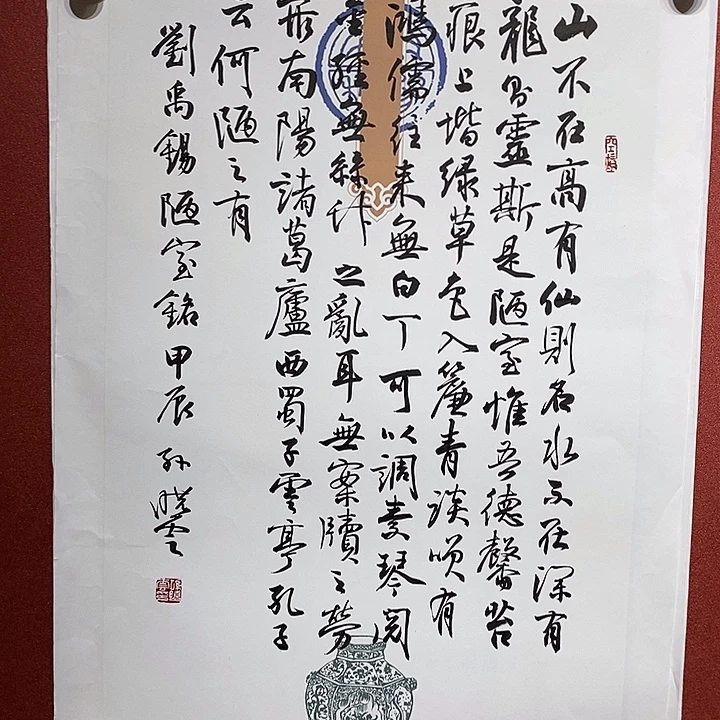 山不在高有仙則名水不在深有
龍則靈斯是陋室惟吾德馨苔
痕上堦緑草色入簾青談笑有
鴻儒往来無白丁可以調素琴閲
金經無絲竹之亂耳無案牘之勞
形南陽諸葛廬西蜀子雲亭孔子
云何陋之有
劉禹錫陋室銘甲辰孙曉雲